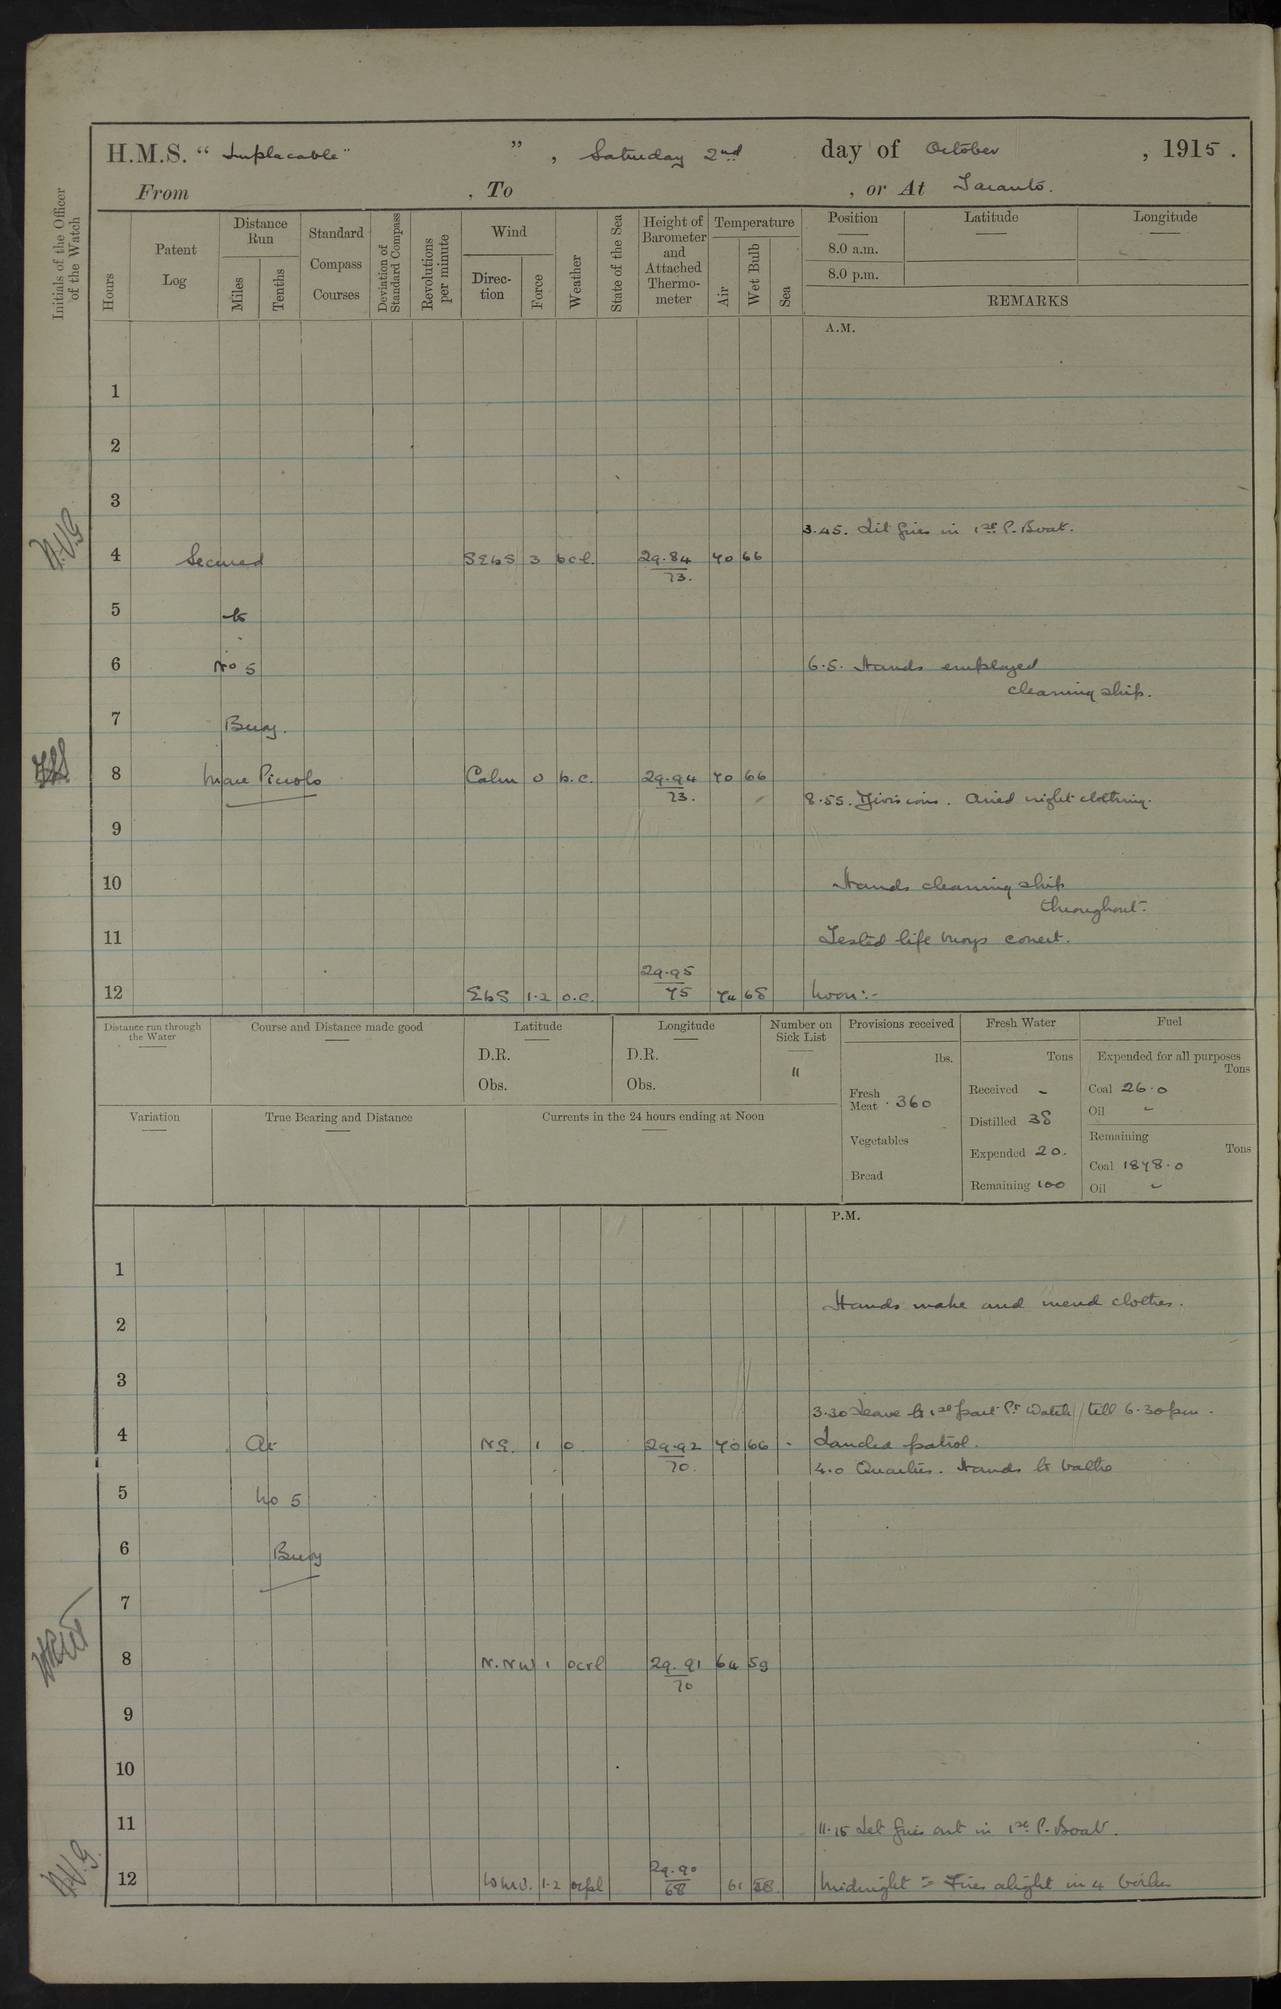 H.M.S. “ Implacable ” , Saturday 2nd day of October , 1915 .
From , To , or At Taranto.
Initials of the Officer of the Watch
Hours
Patent Log
Distance Run
Miles
Tenths
Standard Compass Courses
Deviation of Standard Compass
Revolutions per minute
Wind
Direction
Force
Weather
State of the Sea
Height of Barometer and Attached Thermometer
Temperature
Air
Wet Bulb
Sea
Position
8.0 a.m.
8.0 p.m.
Latitude
Longitude
REMARKS
A.M.
1
2
3
3.45. Lit fires in 1st P. Boat.
4 Secured SEbS 3 bcl. 29.84 70 66
73.
5 to
6 No 5 6.5. Hands employed
cleaning ship.
7 Buoy.
8 Mare Piccolo Calm 0 b.c. 29.94 70 66
73.
8.55. Divisions. Aired night clothing.
9
10 Hands cleaning ship
throughout.
11 Tested life buoys correct.
29.95
12 EbS 1.2 o.c. 75 74 68 Noon:-
Distance run through the Water
Course and Distance made good
Latitude
D.R.
Obs.
Longitude
D.R.
Obs.
Number on Sick List
11
Provisions received
lbs.
Fresh Meat 360
Vegetables
Bread
Fresh Water
Tons
Received -
Distilled 38
Expended 20.
Remaining 100
Fuel
Expended for all purposes
Tons
Coal 26.0
Oil -
Remaining
Tons
Coal 1878.0
Oil -
Variation
True Bearing and Distance
Currents in the 24 hours ending at Noon
P.M.
1
Hands make and mend clothes.
2
3
3.30 Leave to 1st part Pt Watch till 6.30 pm.
4 At N.E. 1 o 29.92 70 66 - Landed patrol.
70.
4.0 Quarters. Hands to bathe
5 No 5
6 Buoy
7
8 N.NW 1 ocrl 29.91 64 59
70
9
10
11 11.15 Let fires out in 1st P. Boat.
29.90
12 1.2 68 61 58. Midnight = Fires alight in 4 boilers